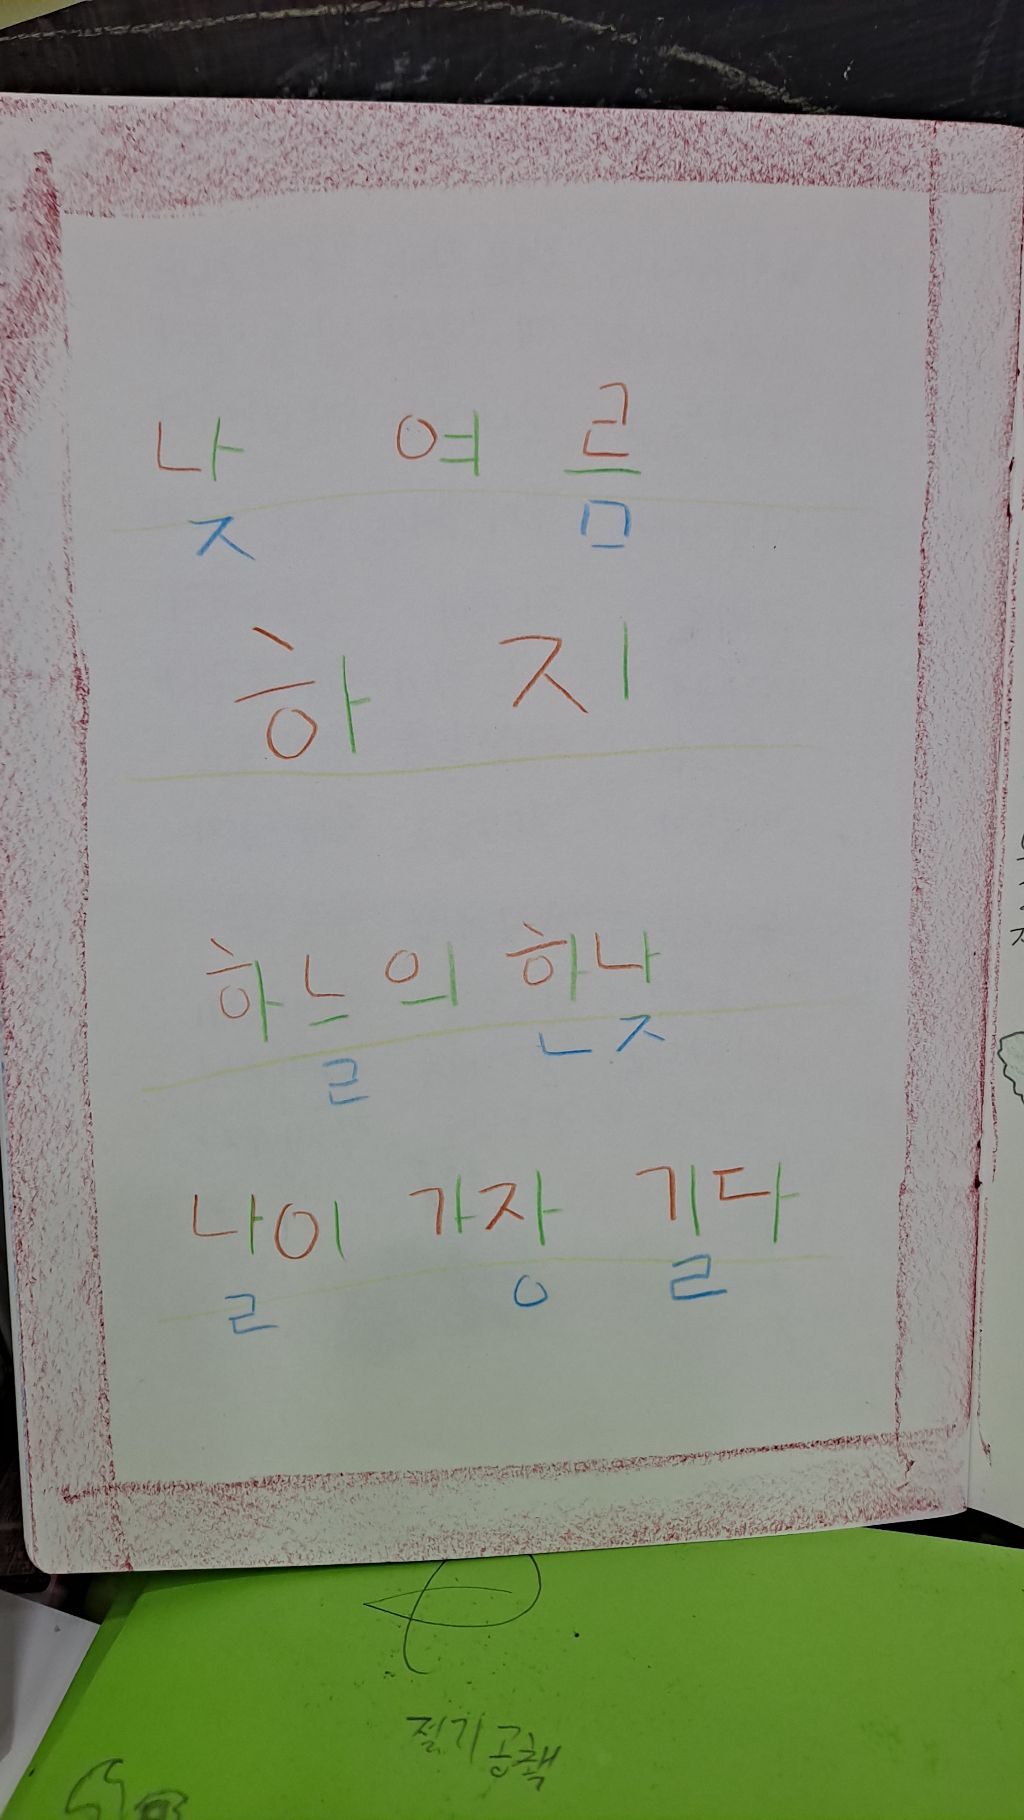 낮 여름
하지
하늘의 한낮
날이 가장 길다
절기공책